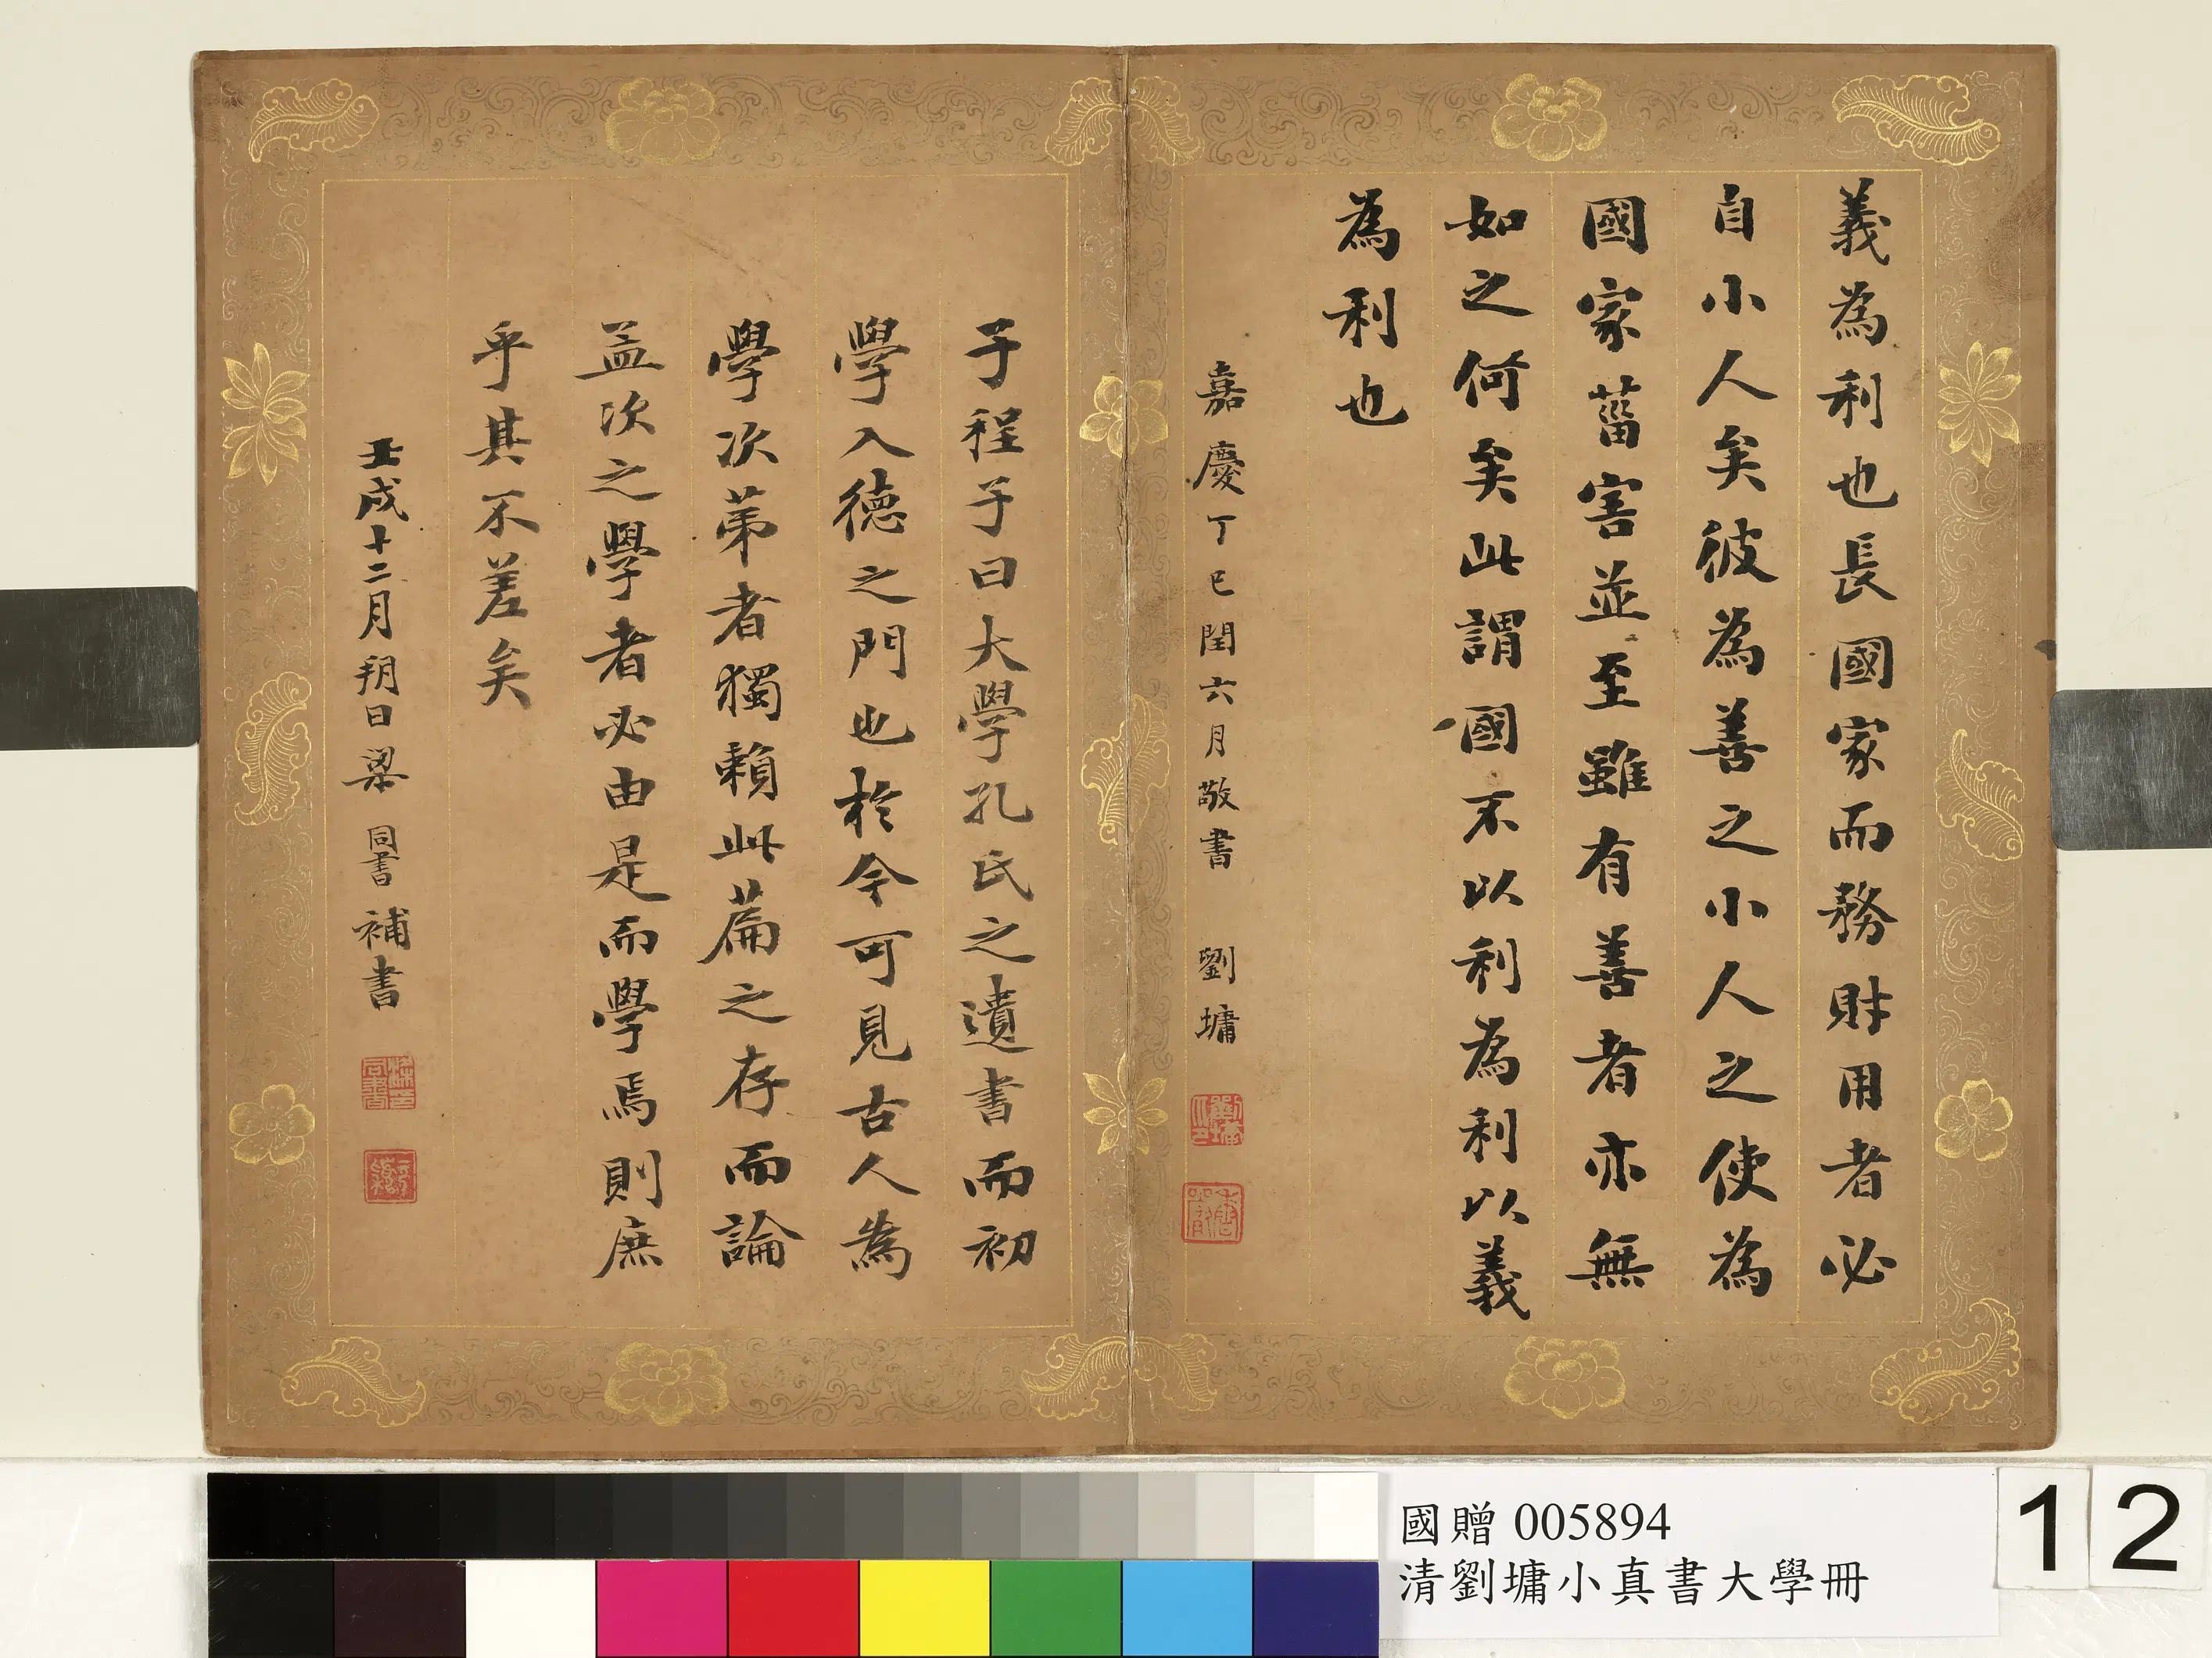 義為利也長國家而務財用者必
自小人矣彼為善之小人之使為
國家菑害並至雖有善者亦無
如之何矣此謂國不以利為利以義
為利也
嘉慶丁巳閏六月敬書 劉墉
劉墉
子程子曰大學孔氏之遺書而初
學入德之門也於今可見古人為
學次苐者獨賴此篇之存而論
孟次之學者必由是而學焉則庶
乎其不差矣
壬戌十二月朔日梁同書補書
國贈 005894
清劉墉小真書大學冊
12